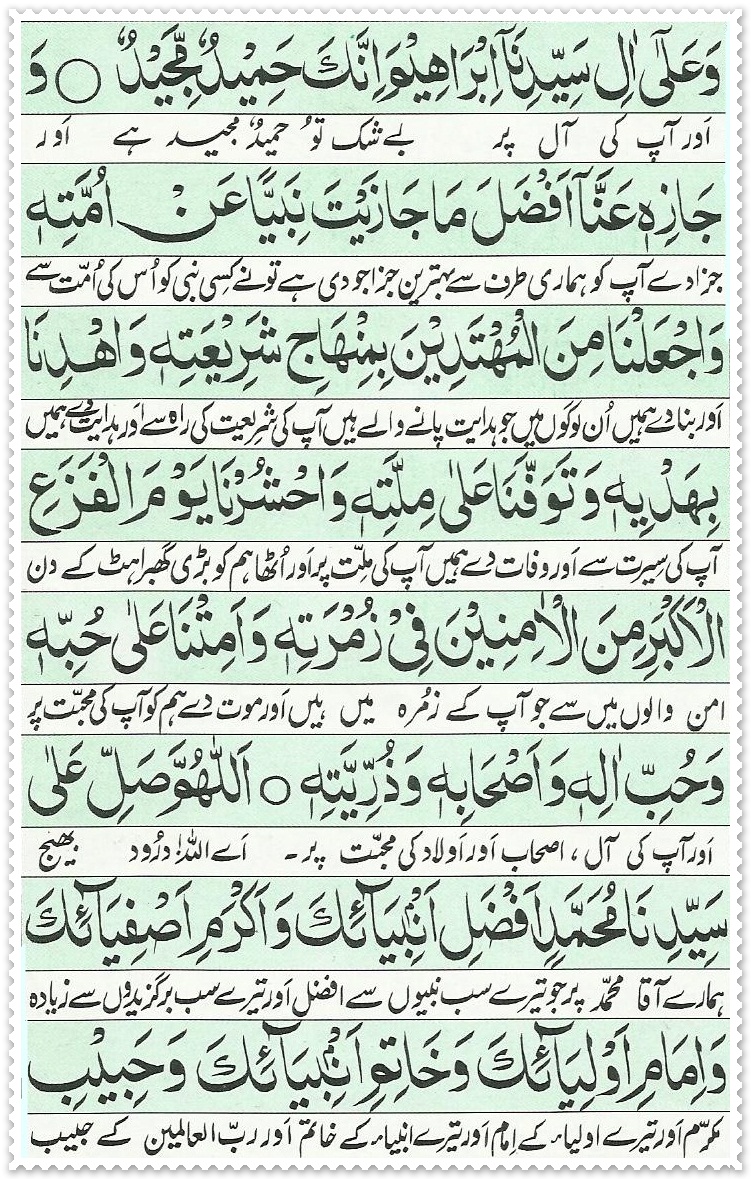 وَعَلٰٓى اٰلِ سَيِّدِنَاۤ اِبْرَاهِيْمَ اِنَّكَ حَمِيْدٌ مَّجِيْدٌ ○ وَ
اَور آپ کی آل پر بے شک تُو حمیدٌ مجید ہے اَور
جَازِهٖ عَنَّاۤ اَفْضَلَ مَا جَازَيْتَ نَبِيًّا عَنْ اُمَّتِهٖ
جزا دے آپ کو ہماری طرف سے بہترین جزا جو دی ہے تو نے کسی نبی کو اُس کی اُمّت سے
وَاجْعَلْنَا مِنَ الْمُهْتَدِيْنَ بِمِنْهَاجِ شَرِيْعَتِهٖ وَاهْدِنَا
اَور بنا دے ہمیں اُن لوگوں میں جو ہدایت پانے والے ہیں آپ کی شریعت کی راہ سے اَور ہدایت دے ہمیں
بِهَدْيِهٖ وَتَوَفَّنَا عَلٰى مِلَّتِهٖ وَاحْشُرْنَا يَوْمَ الْفَزَعِ
آپ کی سیرت سے اَور وفات دے ہمیں آپ کی ملّت پر اَور اُٹھا ہم کو بڑی گھبراہٹ کے دن
الْاَكْبَرِ مِنَ الْاٰمِنِيْنَ فِيْ زُمْرَتِهٖ وَاَمِتْنَا عَلٰى حُبِّهٖ
امن والوں میں سے جو آپ کے زمُرہ میں ہیں اَور موت دے ہم کو آپ کی محبّت پر
وَحُبِّ اٰلِهٖ وَاَصْحَابِهٖ وَذُرِّيَّتِهٖ ○ اَللّٰهُمَّ صَلِّ عَلٰى
اَور آپ کی آل ، اصحاب اَور اَولاد کی محبّت پر۔ اَے اللہ! درُود بھیج
سَيِّدِنَا مُحَمَّدٍ اَفْضَلِ اَنْۢبِيَآئِكَ وَاَكْرَمِ اَصْفِيَآئِكَ
ہمارے آقا محمّد پر جو تیرے سب نبیوں سے افضل اَور تیرے سب برگزیدوں سے زیادہ
وَاِمَامِ اَوْلِيَآئِكَ وَخَاتِمِ اَنْۢبِيَآئِكَ وَحَبِيْبِ
مکرّم اَور تیرے اولیاء کے اِمام اَور تیرے انبیاء کے خاتم اَور ربّ العالمین کے حبیب